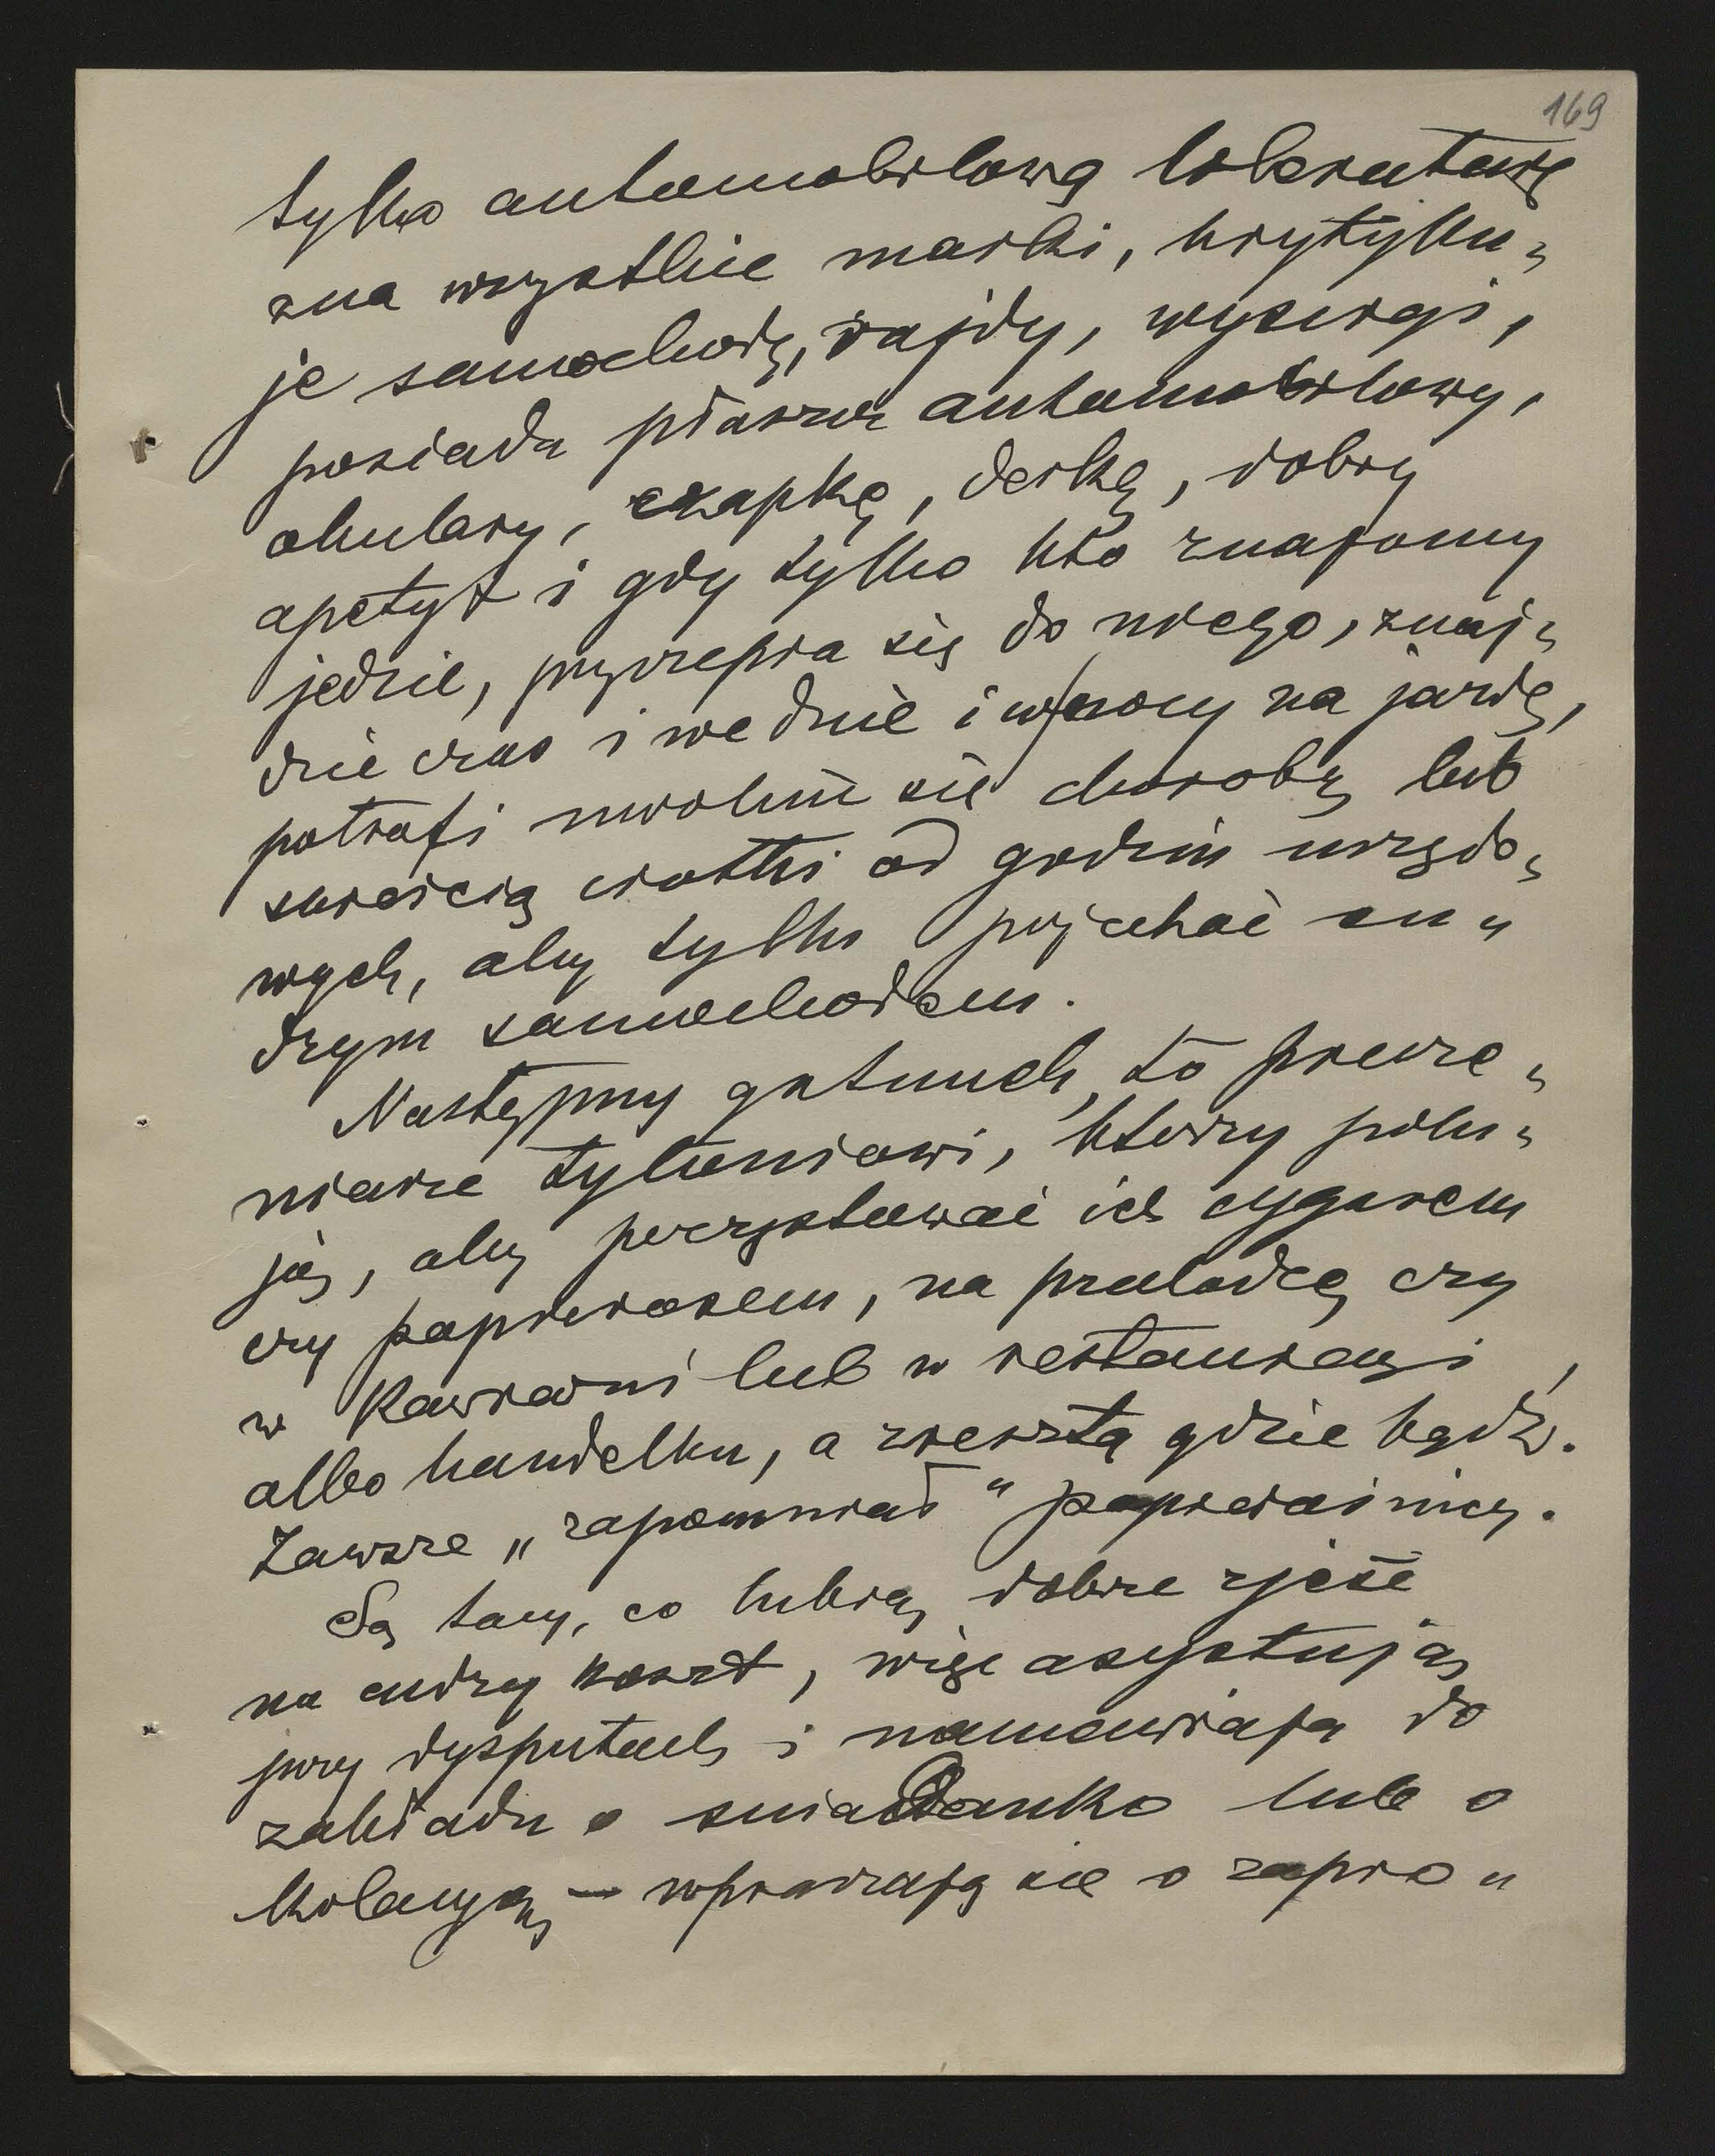 169
tylko automobilową literaturę
zna wszystkie marki, krytyku„
je samochody, rajdy, wyścigi,
posiada płaszcz automobilowy,
okulary, czapkę, derkę, dobry
apetyt i gdy tylko kto znajomy
jedzie, przyczepia się do niego, znaj„
dzie czas i we dnie i w nocy na jazdę,
potrafi uwolnić się chorobą lub
śmiercią ciotki od godzin urzędo„
wych, aby tylko pojechać cu„
dzym samochodem.
Następny gatunek, to pieczeniarze
niarze tytoniowi, którzy polu„
ją, aby poczęstować ich cygarem
czy papierosem, na przechadzce czy
w kawiarni lub w restauracyi,
albo handelku, a zresztą gdzie bądź.
Zawsze „zapomniał" papierośnicy.
Są tacy, co lubią dobrze zjeść
na cudzy koszt, więc asystują
przy dysputach i namawiają do
zakładu o śniadanko lub o
kolacyą, — wpraszają się o zapro„